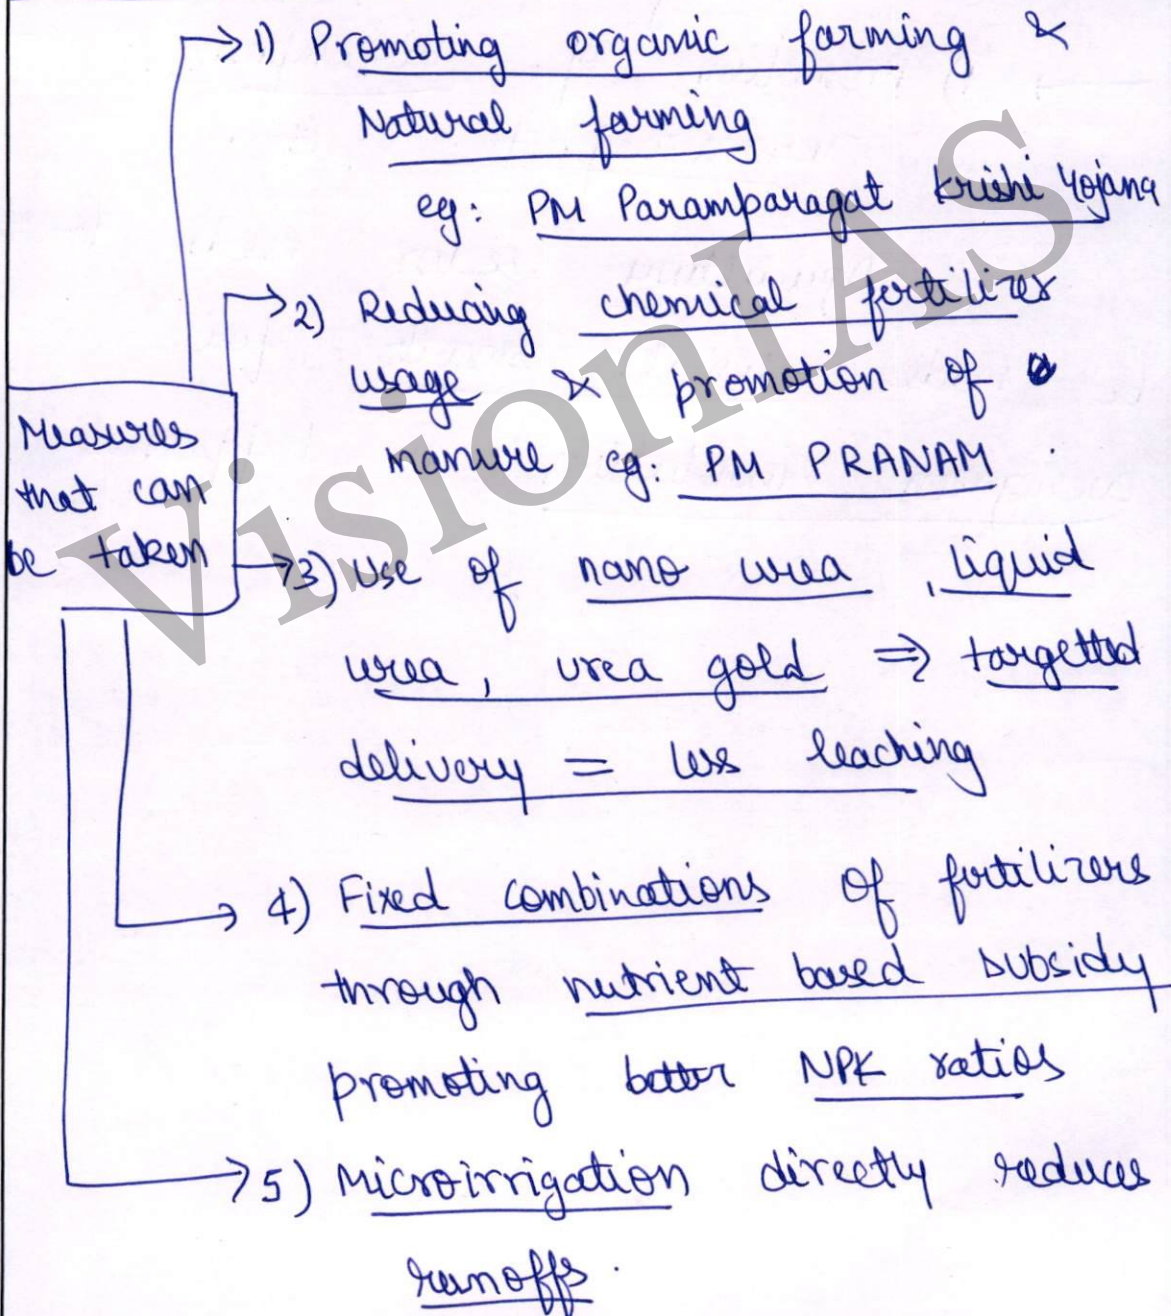 1) Promoting organic farming &
Natural farming
eg: PM Paramparagat Krishi Yojana
2) Reducing chemical fertilizer
usage & promotion of
manure eg: PM PRANAM
Measures
that can
be taken
3) Use of nano urea, liquid
urea, urea gold ⇒ targetted
delivery = less leaching
4) Fixed combinations of fertilizers
through nutrient based subsidy
promoting better NPK ratios
5) Microirrigation directly reduces
runoffs.
VisionIAS